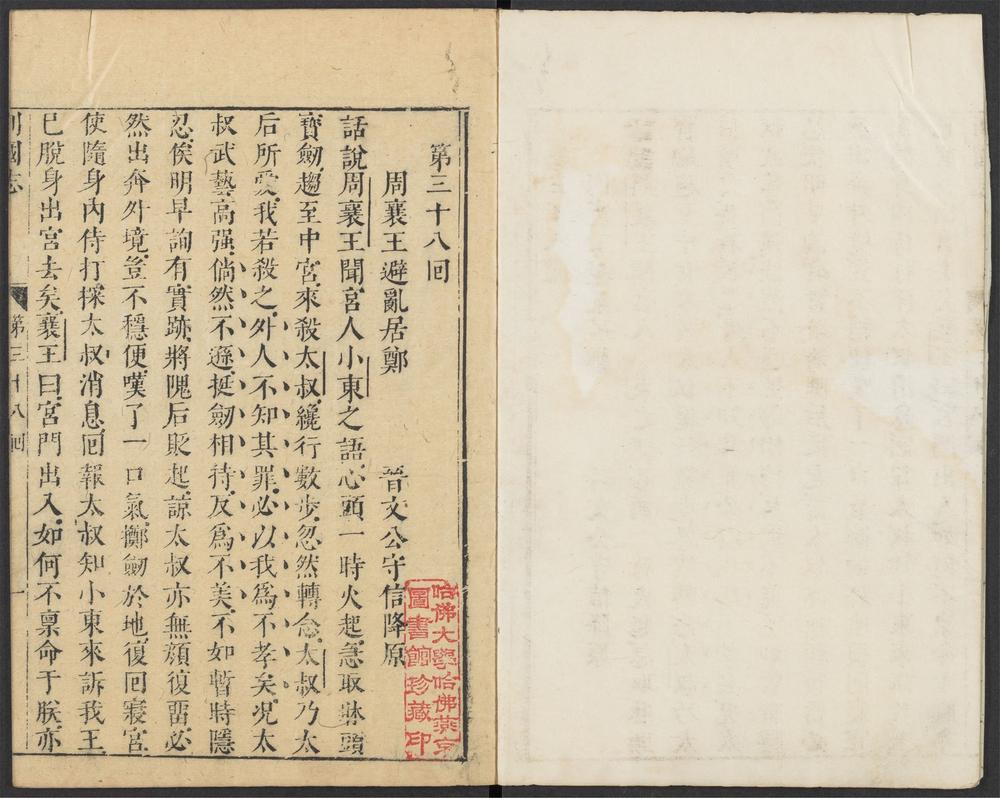 第三十八回
周襄王避亂居鄭　晉文公守信降原
話說周襄王聞宮人小東之語心頭一時火起急取牀頭
寶劍趨至中宮來殺太叔纔行數步忽然轉念太叔乃太
后所愛我若殺之外人不知其罪必以我爲不孝矣况太
叔武藝高强倘然不遜挺劍相待反爲不美不如暫時隱
忍俟明早詢有實跡將隗后貶退諒太叔亦無顏復留必
然出奔外境豈不穩便嘆了一口氣擲劍於地復回寢宮
使隨身內侍打探太叔消息回報太叔知小東來訴我王
已脫身出宮去矣襄王曰宮門出入如何不稟命于朕亦
列國志　第三十八回　一
哈佛大學哈佛燕京
圖書館珍藏印